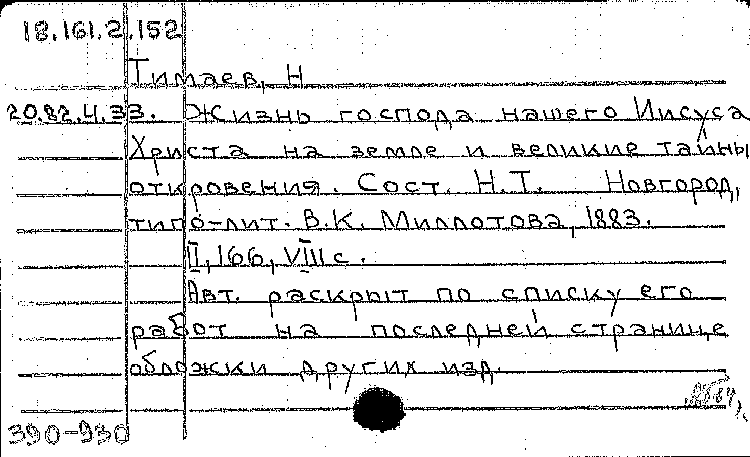 18.161.2.152
Тимаев, Н
20.82.4.33. Жизнь господа нашего Иисуса
Христа на земле и великие тайны
откровения. Сост. Н.Т. Новгород,
типо-лит. В.К. Миллотова, 1883.
II, 166, VIII с.
Авт. раскрыт по списку его
работ на последней странице
обложки других изд.
390-930